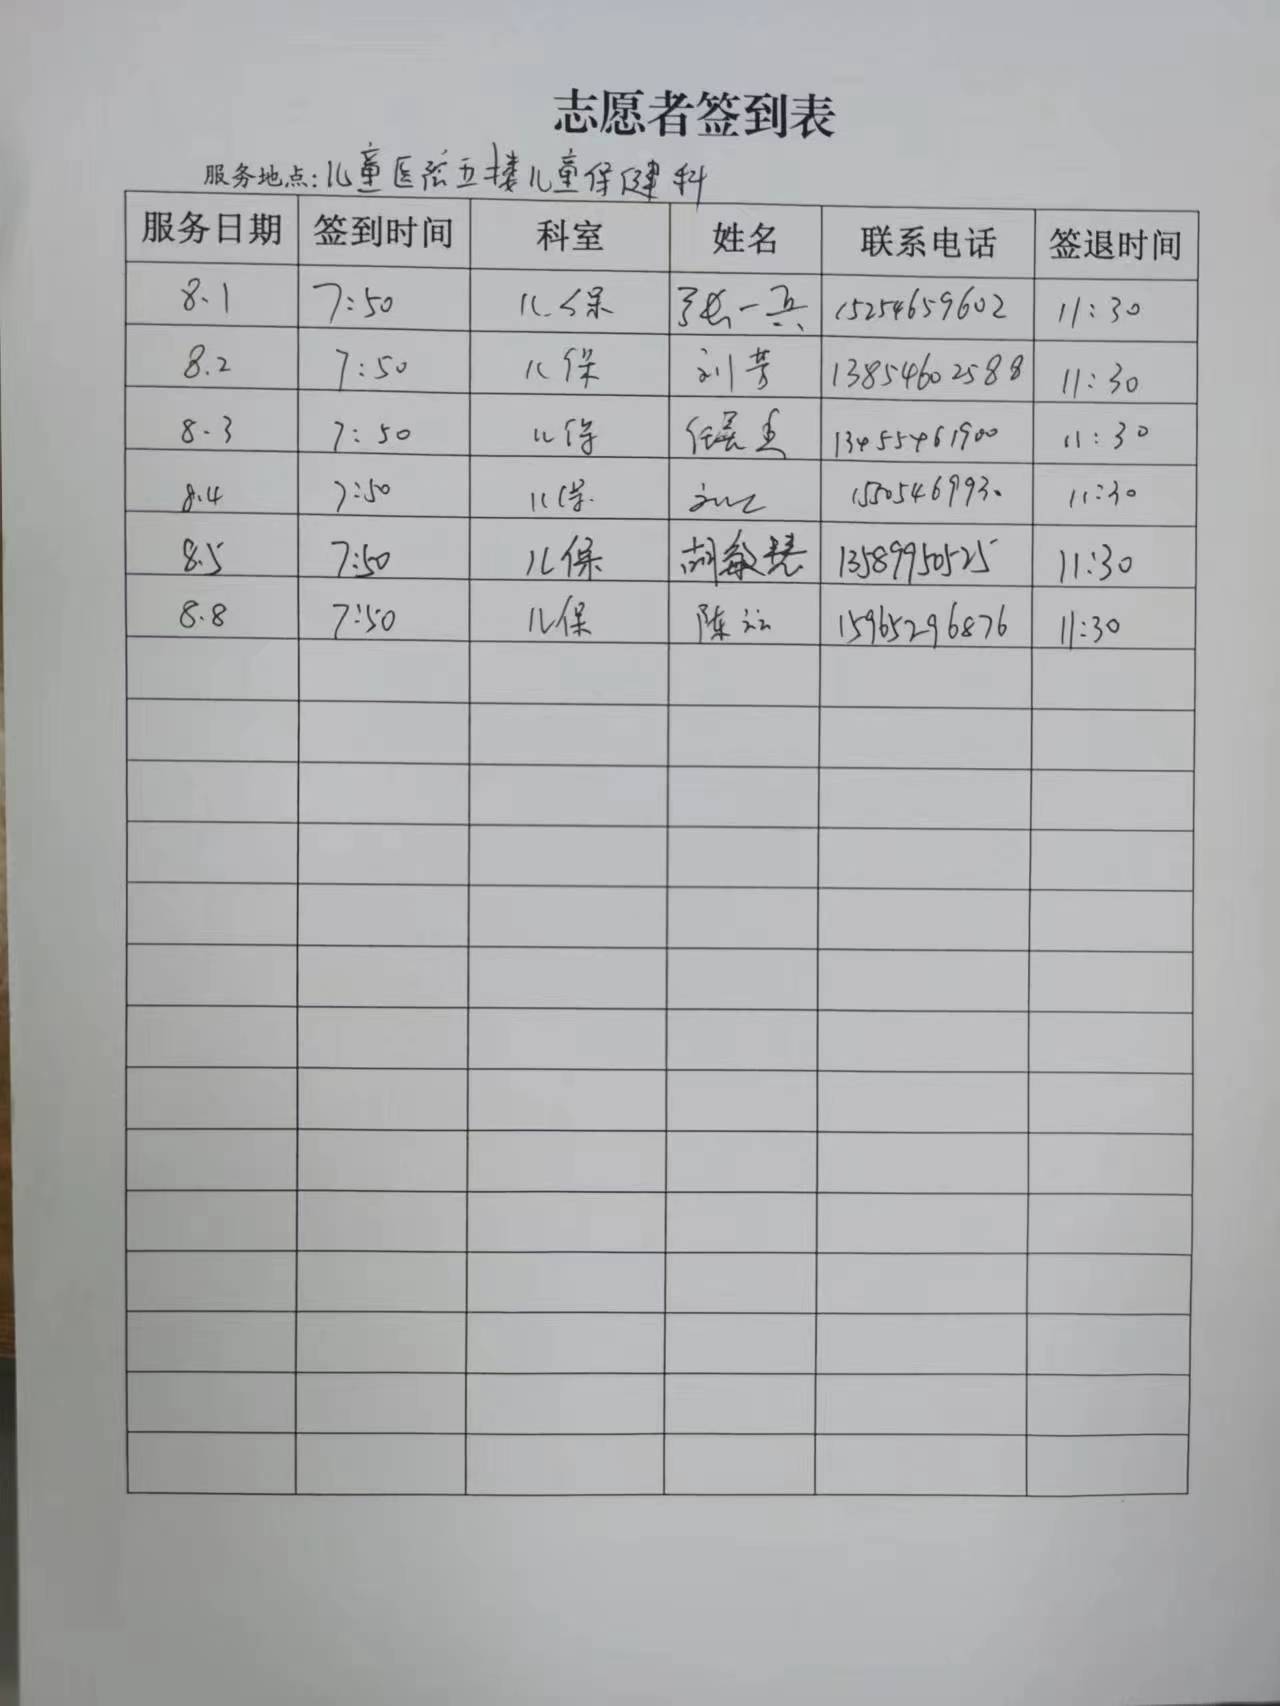 志愿者签到表
服务地点:儿童医院五楼儿童保健科
服务日期 签到时间 科室 姓名 联系电话 签退时间
8.1 7:50 儿保 张一兵 15254659602 11:30
8.2 7:50 儿保 刘芳 13854602588 11:30
8.3 7:50 儿保 13455461900 11:30
8.4 7:50 儿保 11:30
8.5 7:50 儿保 胡敏慧 13589950525 11:30
8.8 7:50 儿保 陈 15965296876 11:30